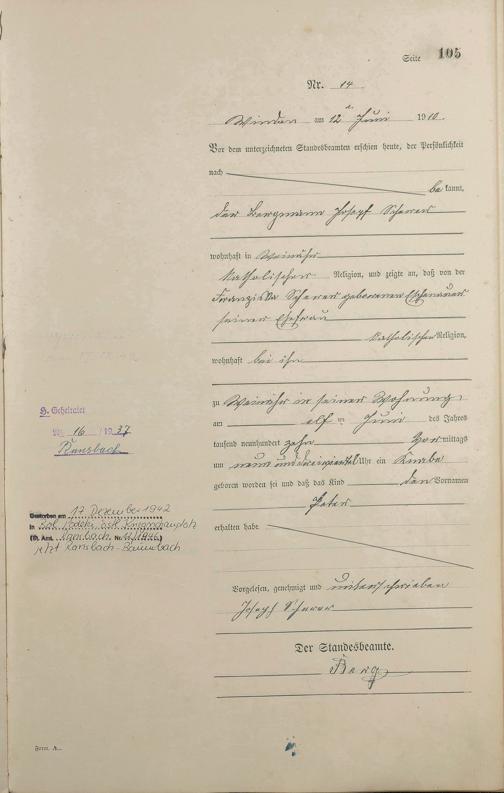 Seite 105
Nr. 14
Winden am 12ten Juni 1910.
Vor dem unterzeichneten Standesbeamten erschien heute, der Persönlichkeit
nach
be kannt,
der Bergmann Josef Scherer
wohnhaft in Weinähr
katholischer Religion, und zeigte an, daß von der
Franziska Scherer geborenen Eschenauer
seiner Ehefrau
katholischer Religion,
wohnhaft bei ihm
zu Weinähr in seiner Wohnung,
am elften Juni des Jahres
tausend neunhundert zehn Vormittags
um neun und dreiviertel Uhr ein Knabe
geboren worden sei und daß das Kind den Vornamen
Peter
erhalten habe.
Vorgelesen, genehmigt und unterschrieben
Josef Scherer
Der Standesbeamte.
Berg
H. Geheiratet
Nr. 16 / 1937
Ransbach
Gestorben am 17. Dezember 1942
in
(St. Amt. Ransbach Nr.
jetzt Ransbach-Baumbach
Form. A.